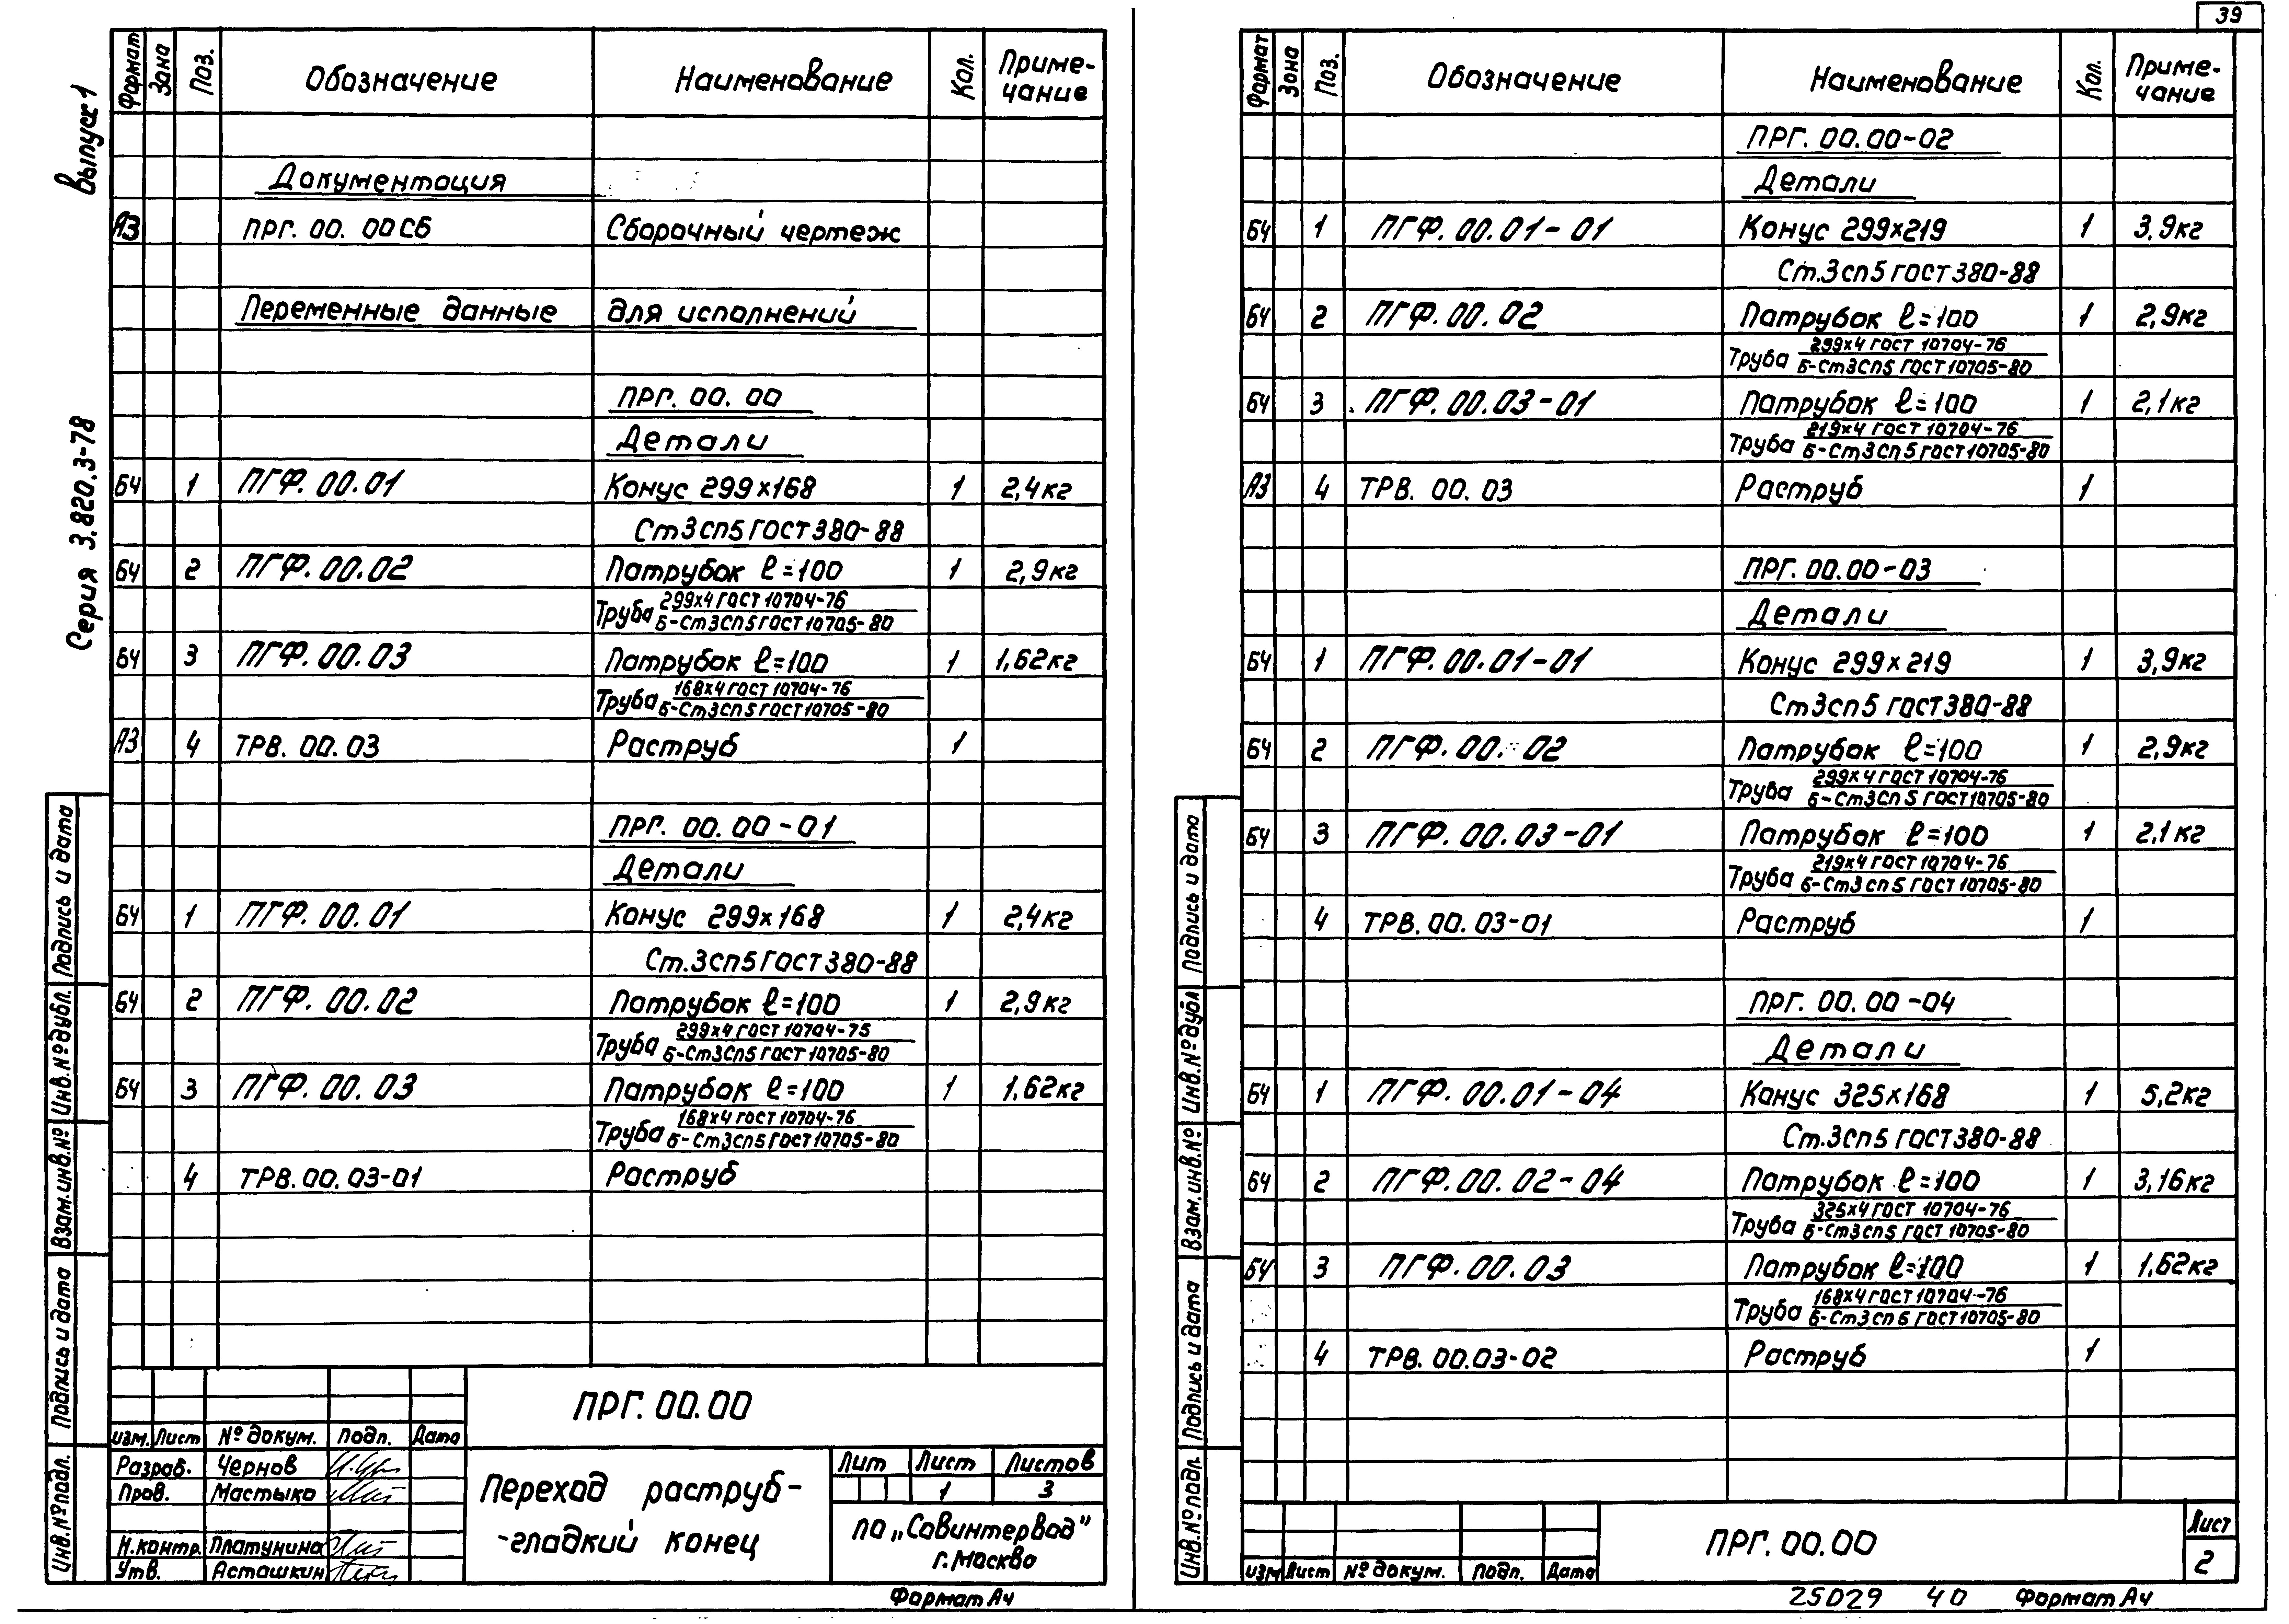 39
Серия 3.820.3-78 Выпуск 1
Формат Зона Поз. Обозначение Наименование Кол. Приме-
чание
Документация
А3 ПРГ. 00. 00СБ Сборочный чертеж
Переменные данные для исполнений
ПРГ. 00. 00
Детали
БЧ 1 ПГФ. 00.01 Конус 299х168 1 2,4кг
Ст3сп5 ГОСТ 380-88
БЧ 2 ПГФ. 00.02 Патрубок ℓ=100 1 2,9кг
299х4 ГОСТ 10704-76
Труба Б-Ст3сп5 ГОСТ 10705-80
БЧ 3 ПГФ. 00.03 Патрубок ℓ=100 1 1,62кг
168х4 ГОСТ 10704-76
Труба Б-Ст3сп5 ГОСТ 10705-80
А3 4 ТРВ. 00. 03 Раструб 1
ПРГ. 00. 00-01
Детали
БЧ 1 ПГФ. 00.01 Конус 299х168 1 2,4кг
Ст.3сп5 ГОСТ 380-88
БЧ 2 ПГФ. 00.02 Патрубок ℓ=100 1 2,9кг
299х4 ГОСТ 10704-75
Труба Б-Ст3сп5 ГОСТ 10705-80
БЧ 3 ПГФ. 00. 03 Патрубок ℓ=100 1 1,62кг
168х4 ГОСТ 10704-76
Труба Б-Ст3сп5 ГОСТ 10705-80
4 ТРВ. 00. 03-01 Раструб
ПРГ. 00.00
изм. Лист № докум. Подп. Дата
Разраб. Чернов
Пров. Мастыко
Н.контр. Платунина
Утв. Асташкин
Переход раструб-
-гладкий конец
Лит Лист Листов
1 3
ПО „Совинтервод"
г. Москва
Формат А4
Подпись и дата
Инв.№ дубл.
Взам.инв.№
Подпись и дата
Инв.№ подл.
Формат Зона Поз. Обозначение Наименование Кол. Приме-
чание
ПРГ. 00.00-02
Детали
БЧ 1 ПГФ. 00.01-01 Конус 299х219 1 3,9кг
Ст.3сп5 ГОСТ 380-88
БЧ 2 ПГФ. 00. 02 Патрубок ℓ=100 1 2,9кг
299х4 ГОСТ 10704-76
Труба Б-Ст3сп5 ГОСТ 10705-80
БЧ 3 ПГФ. 00.03-01 Патрубок ℓ=100 1 2,1кг
219х4 ГОСТ 10704-76
Труба Б-Ст3сп5 ГОСТ 10705-80
А3 4 ТРВ. 00. 03 Раструб 1
ПРГ. 00.00-03
Детали
БЧ 1 ПГФ. 00.01-01 Конус 299х219 1 3,9кг
Ст3сп5 ГОСТ 380-88
БЧ 2 ПГФ. 00. 02 Патрубок ℓ=100 1 2,9кг
299х4 ГОСТ 10704-76
Труба Б-Ст3сп5 ГОСТ 10705-80
БЧ 3 ПГФ. 00. 03-01 Патрубок ℓ=100 1 2,1кг
219х4 ГОСТ 10704-76
Труба Б-Ст3сп5 ГОСТ 10705-80
4 ТРВ. 00. 03-01 Раструб 1
ПРГ. 00. 00-04
Детали
БЧ 1 ПГФ. 00.01-04 Конус 325х168 1 5,2кг
Ст.3сп5 ГОСТ 380-88
БЧ 2 ПГФ. 00. 02-04 Патрубок ℓ=100 1 3,16кг
325х4 ГОСТ 10704-76
Труба Б-Ст3сп5 ГОСТ 10705-80
БЧ 3 ПГФ. 00. 03 Патрубок ℓ=100 1 1,62кг
168х4 ГОСТ 10704-76
Труба Б-Ст3сп5 ГОСТ 10705-80
4 ТРВ. 00.03-02 Раструб 1
изм Лист № докум. Подп. Дата
ПРГ. 00.00
Лист
2
25029 40 Формат А4
Подпись и дата
Инв.№ дубл
Взам.инв.№
Подпись и дата
Инв.№ подл.